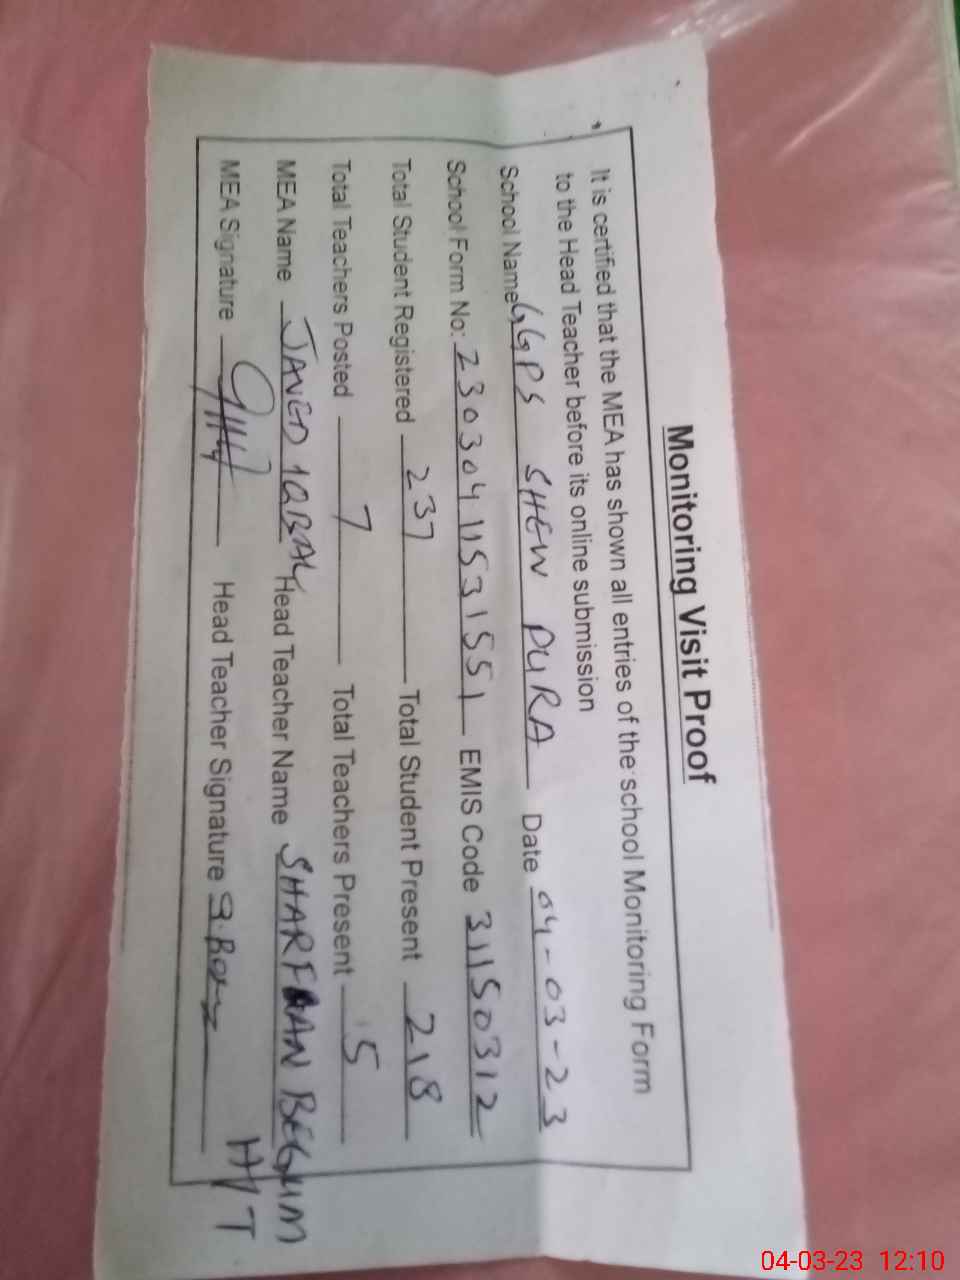 Monitoring Visit Proof
It is certified that the MEA has shown all entries of the school Monitoring Form
to the Head Teacher before its online submission
School Name GGPS SHEW PURA Date 04-03-23
School Form No: 23030411531551 EMIS Code 31150312
Total Student Registered 237 Total Student Present 218
Total Teachers Posted 7 Total Teachers Present 5
MEA Name JAVED IQBAL Head Teacher Name SHARFAN BEGUM
MEA Signature Head Teacher Signature H/T
04-03-23 12:10